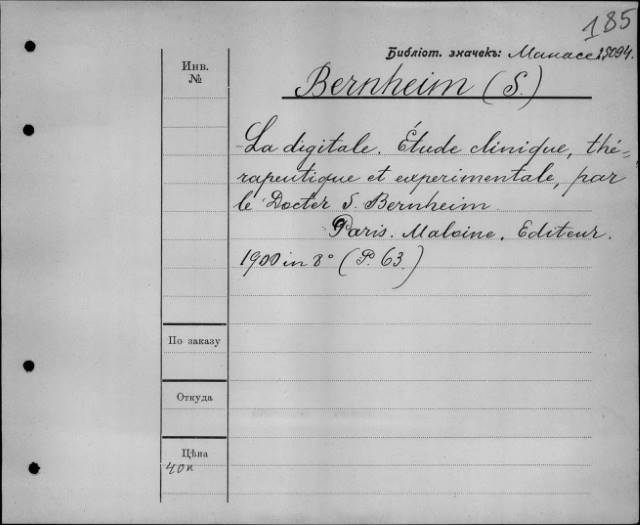 185
Библіот. значекъ: Манассе 15094.
Инв.
№
Bernheim (S.)
La digitale. Étude clinique, thé=
rapeutique et experimentale, par
le Docter S. Bernheim.
Paris. Maloine. Editeur.
1900 in 8° (P. 63.)
По заказу
Откуда
Цѣна
40к